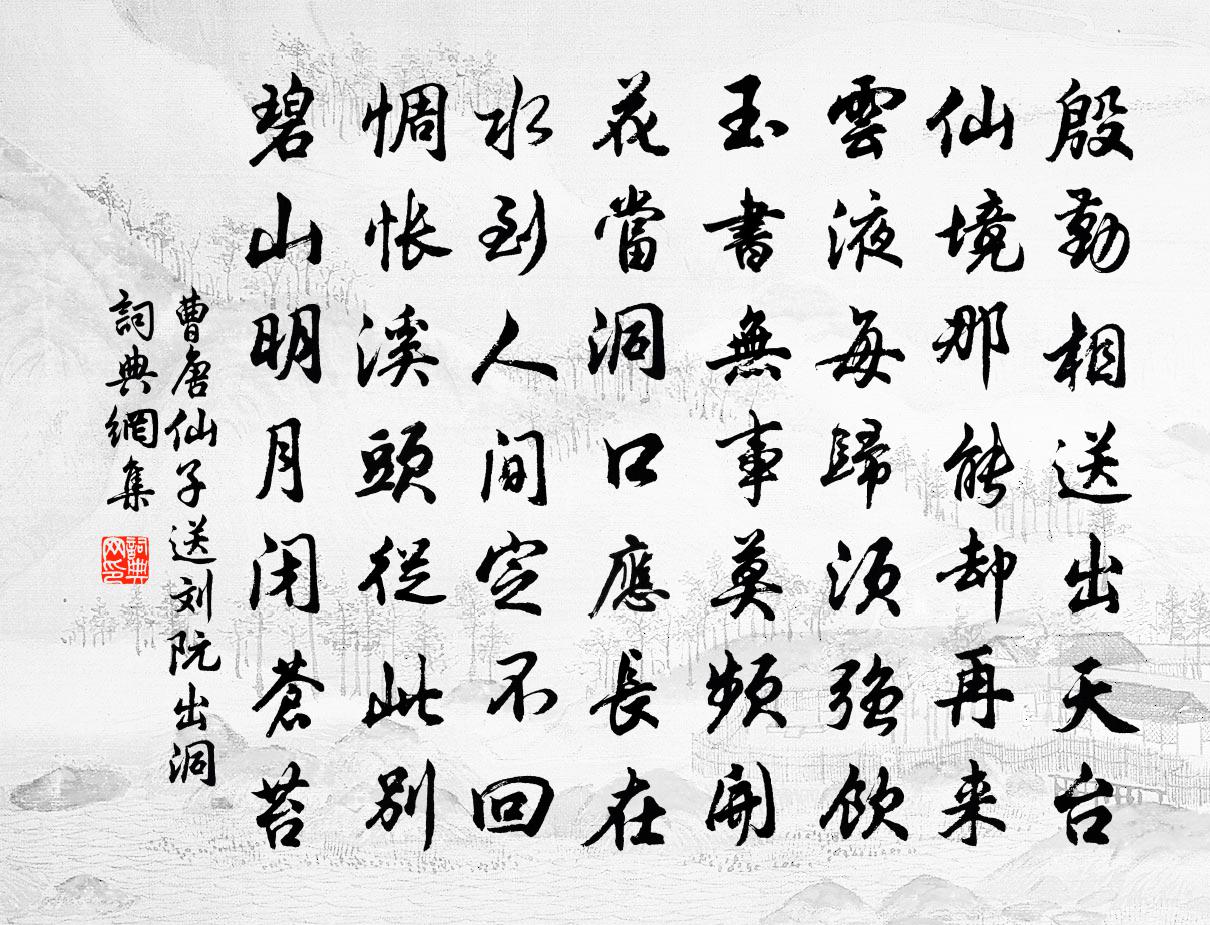 殷勤相送出天台
仙境那能却再来
雲液每歸須強飲
玉書無事莫頻開
花當洞口應長在
水到人间定不回
惆怅溪頭從此別
碧山明月闭蒼苔
曹唐仙子送刘阮出洞
詞典網集
詞典网印